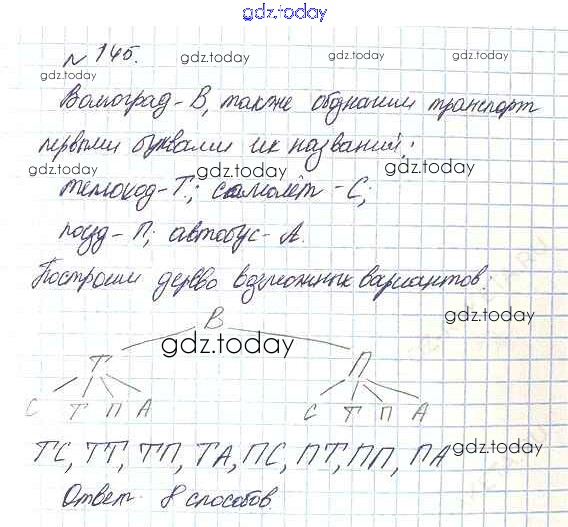 gdz.today
№ 145. gdz.today gdz.today gdz.today
gdz.today
Волгоград - В, также обозначим транспорт
первыми буквами их названий:
gdz.today gdz.today gdz.today
теплоход - Т; самолёт - С;
поезд - П; автобус - А.
Построим дерево возможных вариантов:
В gdz.today
gdz.today
Т П
С Т П А С Т П А
ТС, ТТ, ТП, ТА, ПС, ПТ, ПП, ПА gdz.today
Ответ: 8 способов.